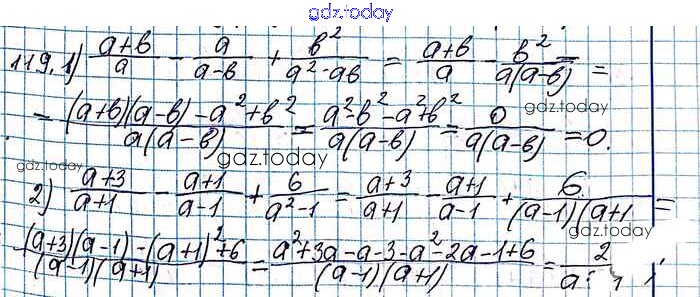 gdz.today
119. 1) (a+b)/a - a/(a-b) + b²/(a²-ab) = (a+b)/a - b²/(a(a-b)) =
= ((a+b)(a-b) - a² + b²)/(a(a-b)) = (a²-b²-a²+b²)/(a(a-b)) = 0/(a(a-b)) = 0.
gdz.today
gdz.today
gdz.today
2) (a+3)/(a+1) - (a+1)/(a-1) + 6/(a²-1) = (a+3)/(a+1) - (a+1)/(a-1) + 6/((a-1)(a+1 =
((a+3)(a-1) - (a+1)² + 6)/((a-1)(a+1)) = (a²+3a-a-3-a²-2a-1+6)/((a-1)(a+1)) = 2/a